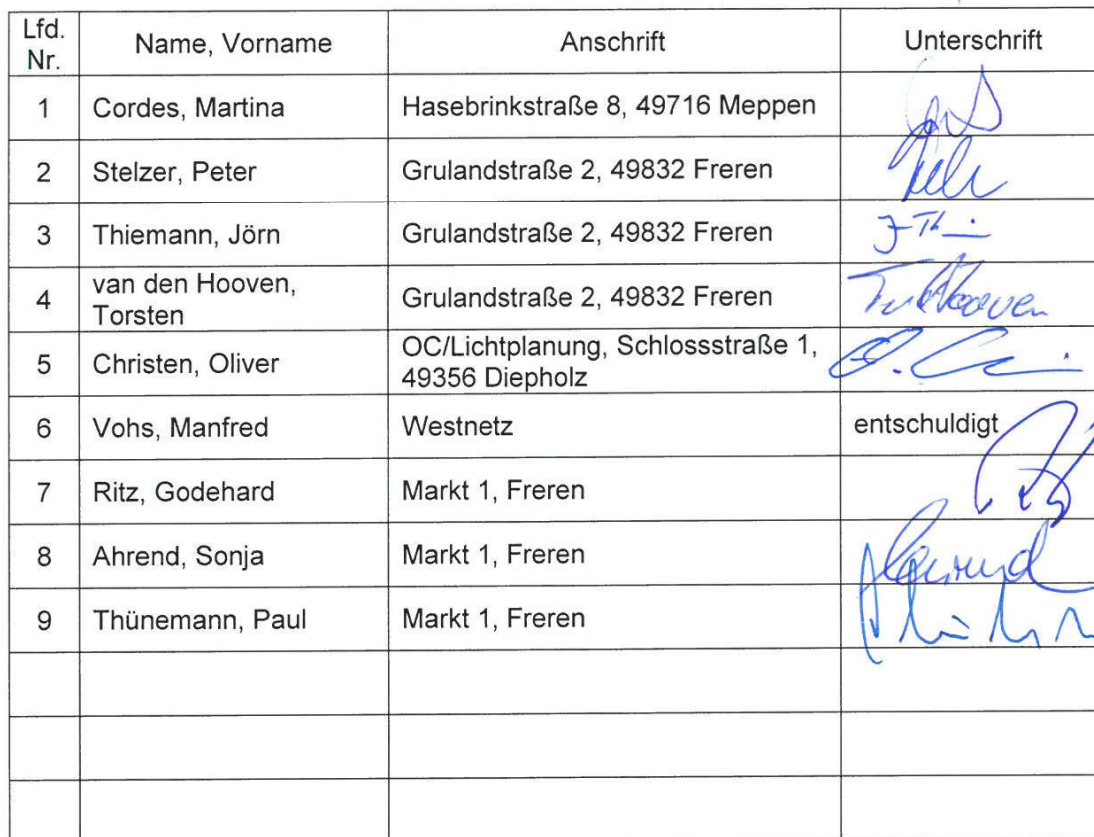 Lfd. Nr. Name, Vorname Anschrift Unterschrift
1 Cordes, Martina Hasebrinkstraße 8, 49716 Meppen
2 Stelzer, Peter Grulandstraße 2, 49832 Freren
3 Thiemann, Jörn Grulandstraße 2, 49832 Freren
4 van den Hooven, Torsten Grulandstraße 2, 49832 Freren
5 Christen, Oliver OC/Lichtplanung, Schlossstraße 1, 49356 Diepholz
6 Vohs, Manfred Westnetz entschuldigt
7 Ritz, Godehard Markt 1, Freren
8 Ahrend, Sonja Markt 1, Freren
9 Thünemann, Paul Markt 1, Freren